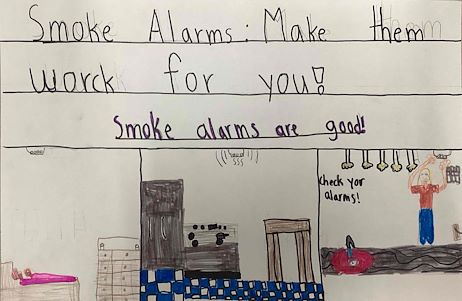 Smoke Alarms: Make them
worck for you!
Smoke alarms are good!
check yor
alarms!